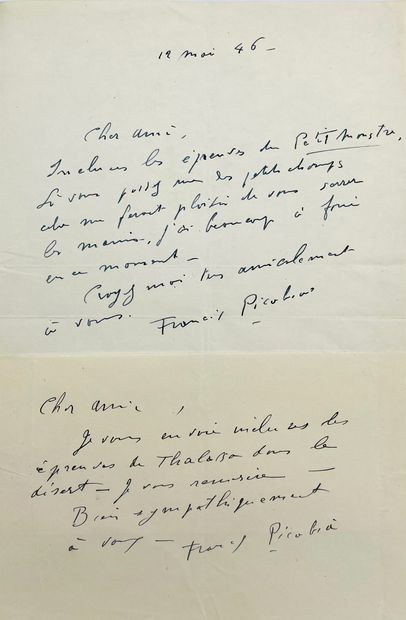 12 mai 46 –
Cher ami,
Incluses les épreuves du Petit Monstre,
Si vous passez rue des petits champs
cela me ferait plaisir de vous serrer
les mains, j'ai beaucoup à faire
en ce moment –
Croyez moi très amicalement
à vous.
Francis Picabia
Cher ami,
Je vous envoie incluses les
épreuves de Thalassa dans le
désert – Je vous remercie –
Bien sympathiquement
à vous – Francis Picabia